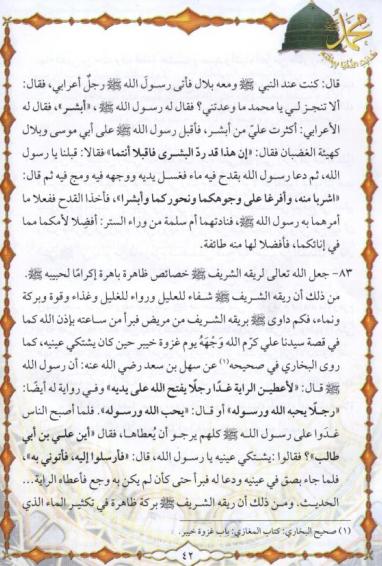 محمد
قال: كنت عند النبي ﷺ ومعه بلال فأتى رسولَ الله ﷺ رجلٌ أعرابي، فقال:
ألا تنجز لي يا محمد ما وعدتني؟ فقال له رسول الله ﷺ: «أبشر»، فقال له
الأعرابي: أكثرت عليّ من أبشر، فأقبل رسول الله ﷺ على أبي موسى وبلال
كهيئة الغضبان فقال: «إن هذا قد ردّ البشرى فاقبلا أنتما» فقالا: قبلنا يا رسول
الله، ثم دعا رسول الله ﷺ بقدح فيه ماء فغسل يديه ووجهه فيه ومج فيه ثم قال:
«اشربا منه، وأفرغا على وجوهكما ونحوركما وأبشرا»، فأخذا القدح ففعلا ما
أمرهما به رسول الله ﷺ، فنادتهما أم سلمة من وراء الستر: أفضِلا لأمكما مما
في إنائكما، فأفضلا لها منه طائفة.
٨٣- جعل الله تعالى لريقه الشريف ﷺ خصائص ظاهرة باهرة إكرامًا لحبيبه ﷺ.
من ذلك أن ريقه الشريف ﷺ شفاء للعليل ورواء للغليل وغذاء وقوة وبركة
ونماء، فكم داوى ﷺ بريقه الشريف من مريض فبرأ من ساعته بإذن الله كما
في قصة سيدنا علي كرّم الله وَجْهَهُ يوم غزوة خيبر حين كان يشتكي عينيه، كما
روى البخاري في صحيحه(١) عن سهل بن سعد رضي الله عنه: أن رسول الله
ﷺ قال: «لأعطين الراية غدًا رجلًا يفتح الله على يديه» وفي رواية له أيضًا:
«رجلًا يحبه الله ورسوله» أو قال: «يحب الله ورسوله». فلما أصبح الناس
غدَوا على رسول الله ﷺ كلهم يرجو أن يُعطاها، فقال «أين علي بن أبي
طالب»؟ فقالوا: يشتكي عينيه يا رسول الله، قال: «فأرسلوا إليه، فأتوني به»،
فلما جاء بصق في عينيه ودعا له فبرأ حتى كأن لم يكن به وجع فأعطاه الراية...
الحديث. ومن ذلك أن ريقه الشريف ﷺ بركة ظاهرة في تكثير الماء الذي
(١) صحيح البخاري: كتاب المغازي: باب غزوة خيبر.
٤٢